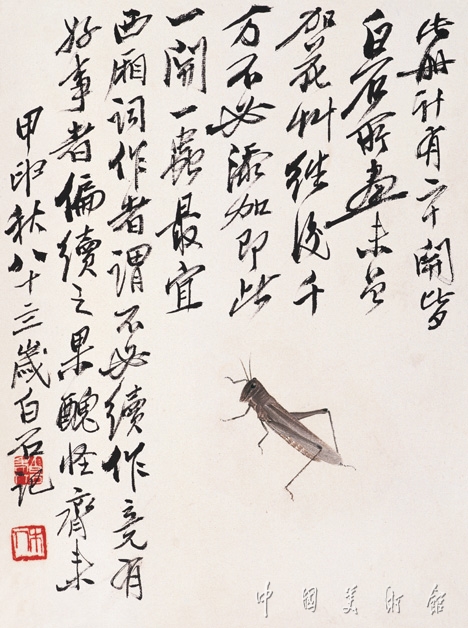 此册計有二十開皆
白石所畫未曾
加花艸繼後千
万不必添加即此
一開一蟲最宜
西廂詞作者謂不必續作竟有
好事者偏續之果醜怪齊来
甲申秋八十三歲白石記
木人
中國美術館